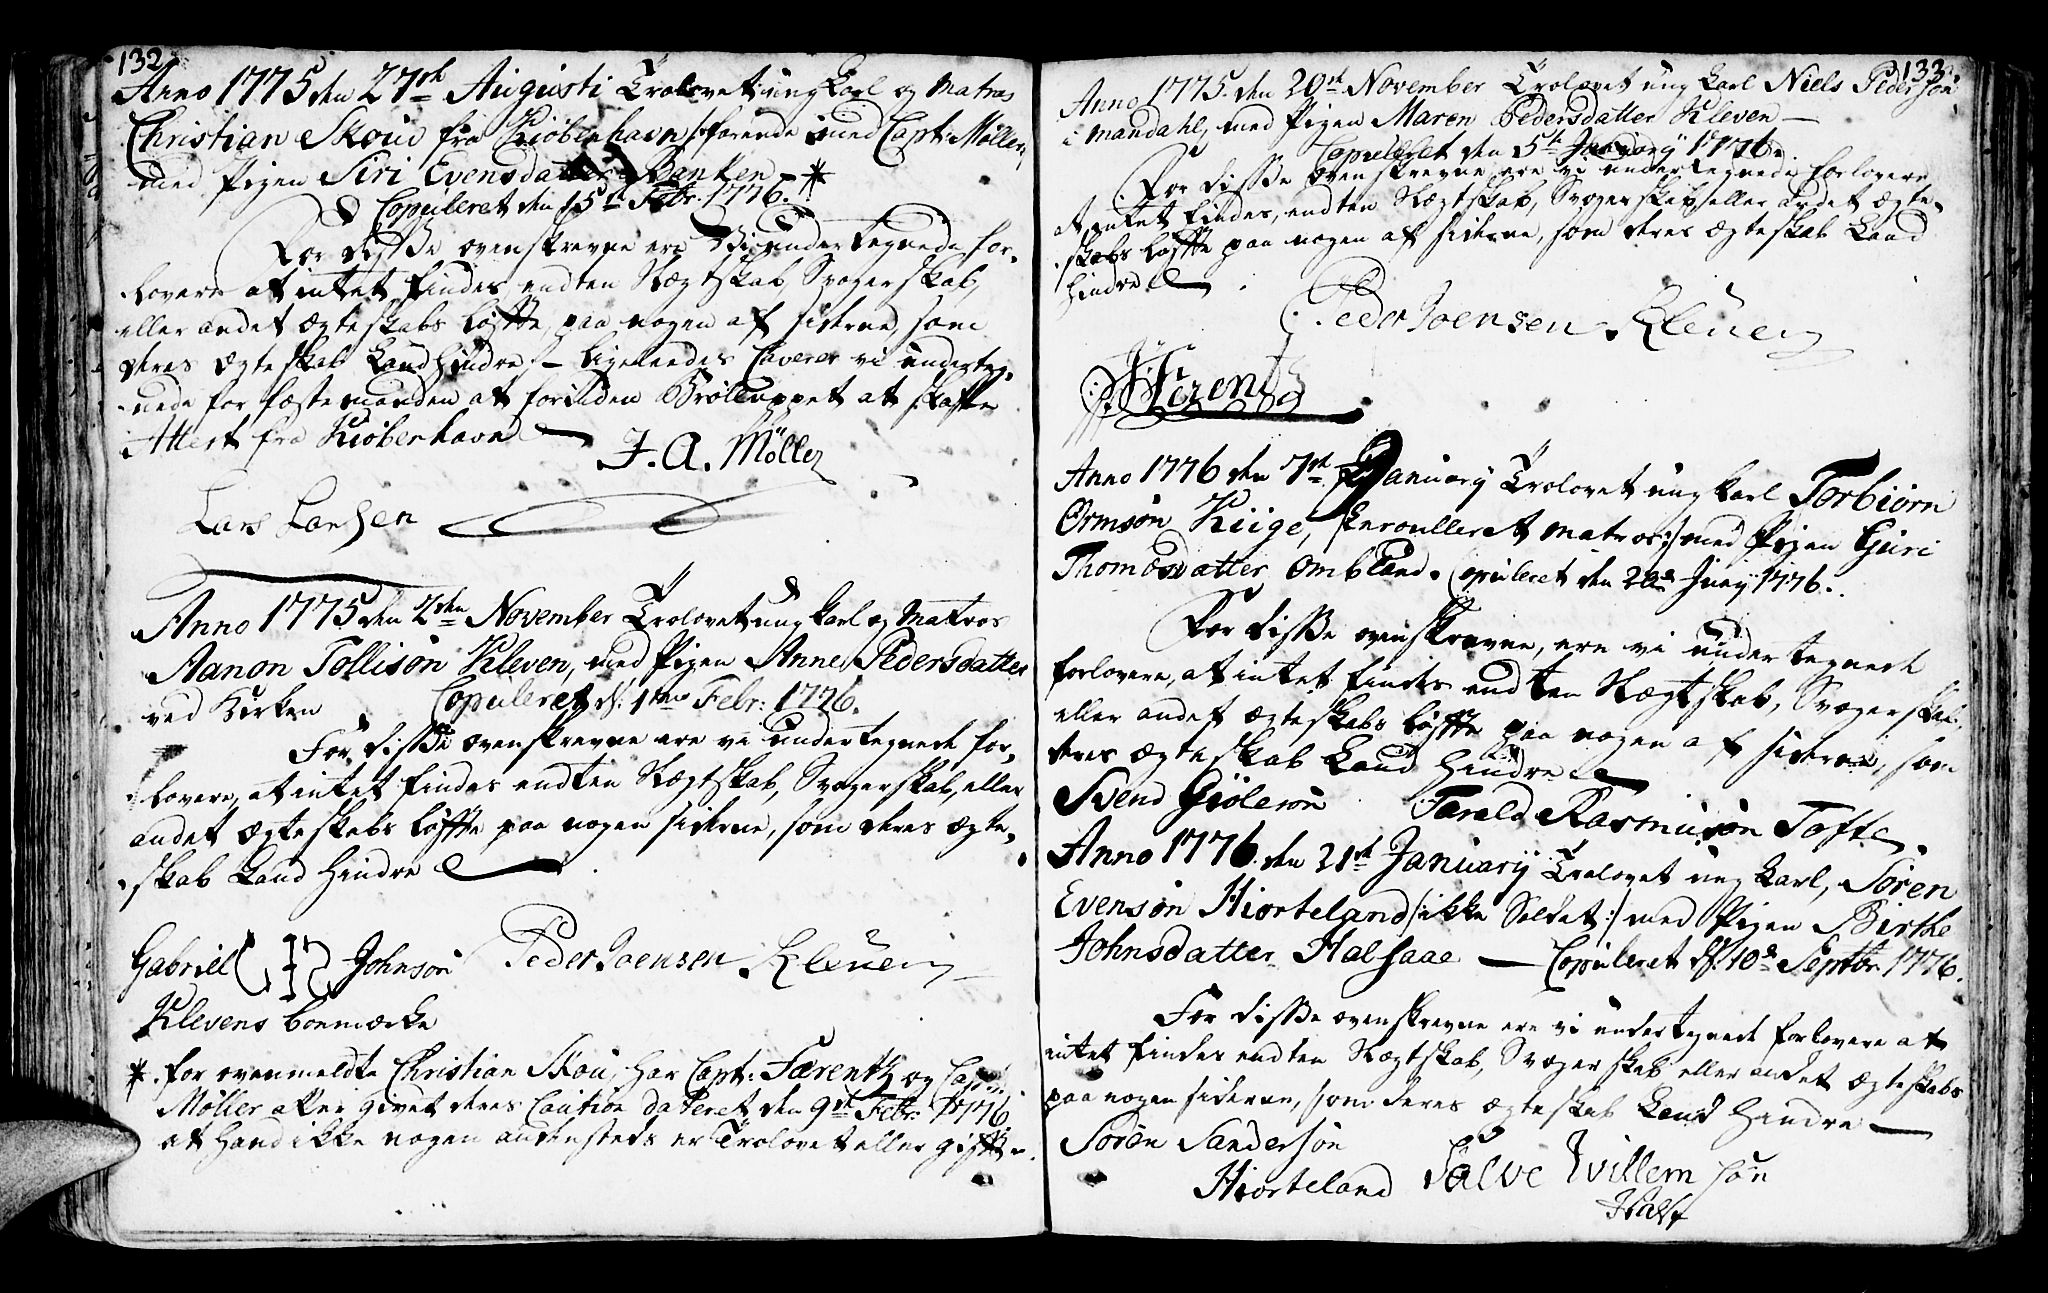 132.
Anno 1775 den 27de Augusti Trolovet ung Karl og Matros
Christian Skou fra Kiøbenhavn /:farende med Capt: Møller,
med Pigen Siri Evensdatter Banken - *
Copuleret den 15de Febr. 1776.
For disse ovenskrevne ere Vi undertegnede for-
lovere at intet findes endten Slægtskab, Svogerskab,
eller andet Ægteskabs Løffte, paa nogen af siderne, som
deres Ægteskab Kand hindre, - ligeleedes Caverer vi underteg-
nede for fæstemanden at forinden Brølluppet at skaffe
Attest fra Kiøbenhavn
J. A. Möller
Lars Larsen
Anno 1775 den 2den November Trolovet ung Karl og Matros
Aanon Tollisøn Kleven, med Pigen Anne Pedersdatter
ved Kirken Copuleret d. 1ten Febr: 1776.
For disse ovenskrevne ere vi undertegnede for-
lovere, at intet findes endten Slægtskab, Svogerskab, eller
andet Ægteskabs Løffte paa nogen siderne, som deres Ægte-
skab Kand hindre
Gabriel Johnsøn Peder Joensen Kleven
Klevens boemærke
* for ovenmeldte Christian Skou, har Capt: Færentz og Capt:
Møller ........ givet deres Caution dateret den 9de Febr. 1776
at hand ikke nogen andensteds er Trolovet eller gifft.
133.
Anno 1775. den 20de November Trolovet ung Karl Niels Pedersøn
i Mandahl, med Pigen Maren Pedersdatter Kleven -
Copuleret den 5te January 1776.
For disse ovenskrevne ere vi undertegnede forlovere
at intet findes, endten Slægtskab, Svogerskab eller andet Ægte-
skabs Løffte paa nogen af siderne, som deres Ægteskab Kand
hindre
Peder Joensen Kleven
Anno 1776 den 7de January Trolovet ung Karl Torbiørn
Ormsøn Kiige, /:enroulleret matros:/ med Pigen Guri
Thomasdatter Ombland. Copuleret den 20de Juny 1776.
For disse ovenskrevne, ere vi undertegnede
forlovere, at intet findes endten Slægtskab, Svogerskab,
eller andet Ægteskabs Løffte paa nogen af siderne, som
deres Ægteskab Kand hindre
Svend Giølesøn Tarald Rasmusøn Tofte
Anno 1776. den 21de January Trolovet ung Karl, Søren
Evensøn Hiorteland /:ikke Soldat:/ med Pigen Birthe
Johnsdatter Halsaae - Copuleret d. 10de Septbr. 1776.
For disse ovenskrevne ere vi undertegnede forlovere at
intet findes endten Slægtskab, Svogerskab eller andet Ægteskabs
paa nogen siderne, som deres Ægteskab Kand hindre
Søren Sandersøn
Hiorteland Salve Willemsøn